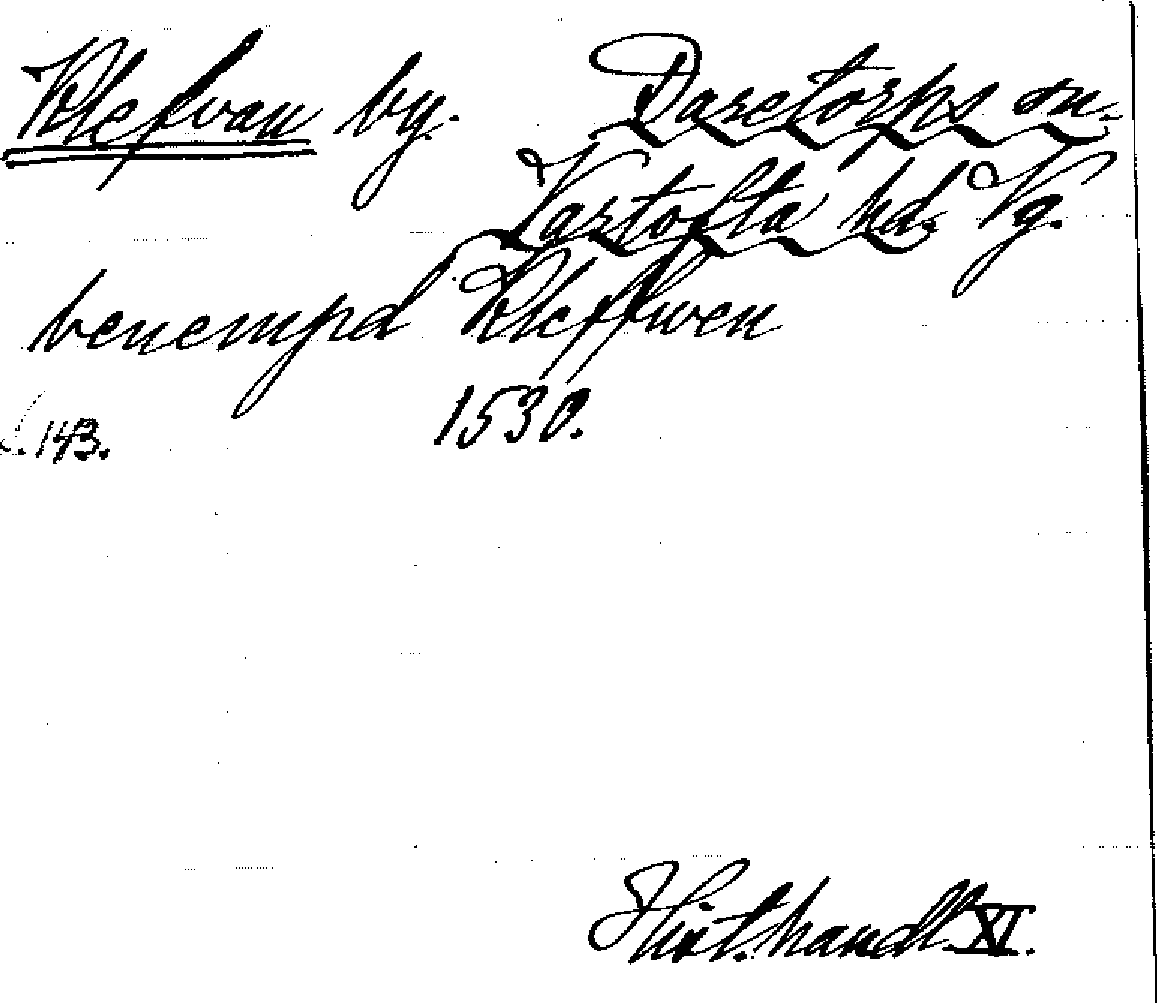 Klefvan by. Daretorps sn.
Vartofta hd. Vg.
benempd Kleffwen
s. 143. 1530.
Hist. handl. XI.